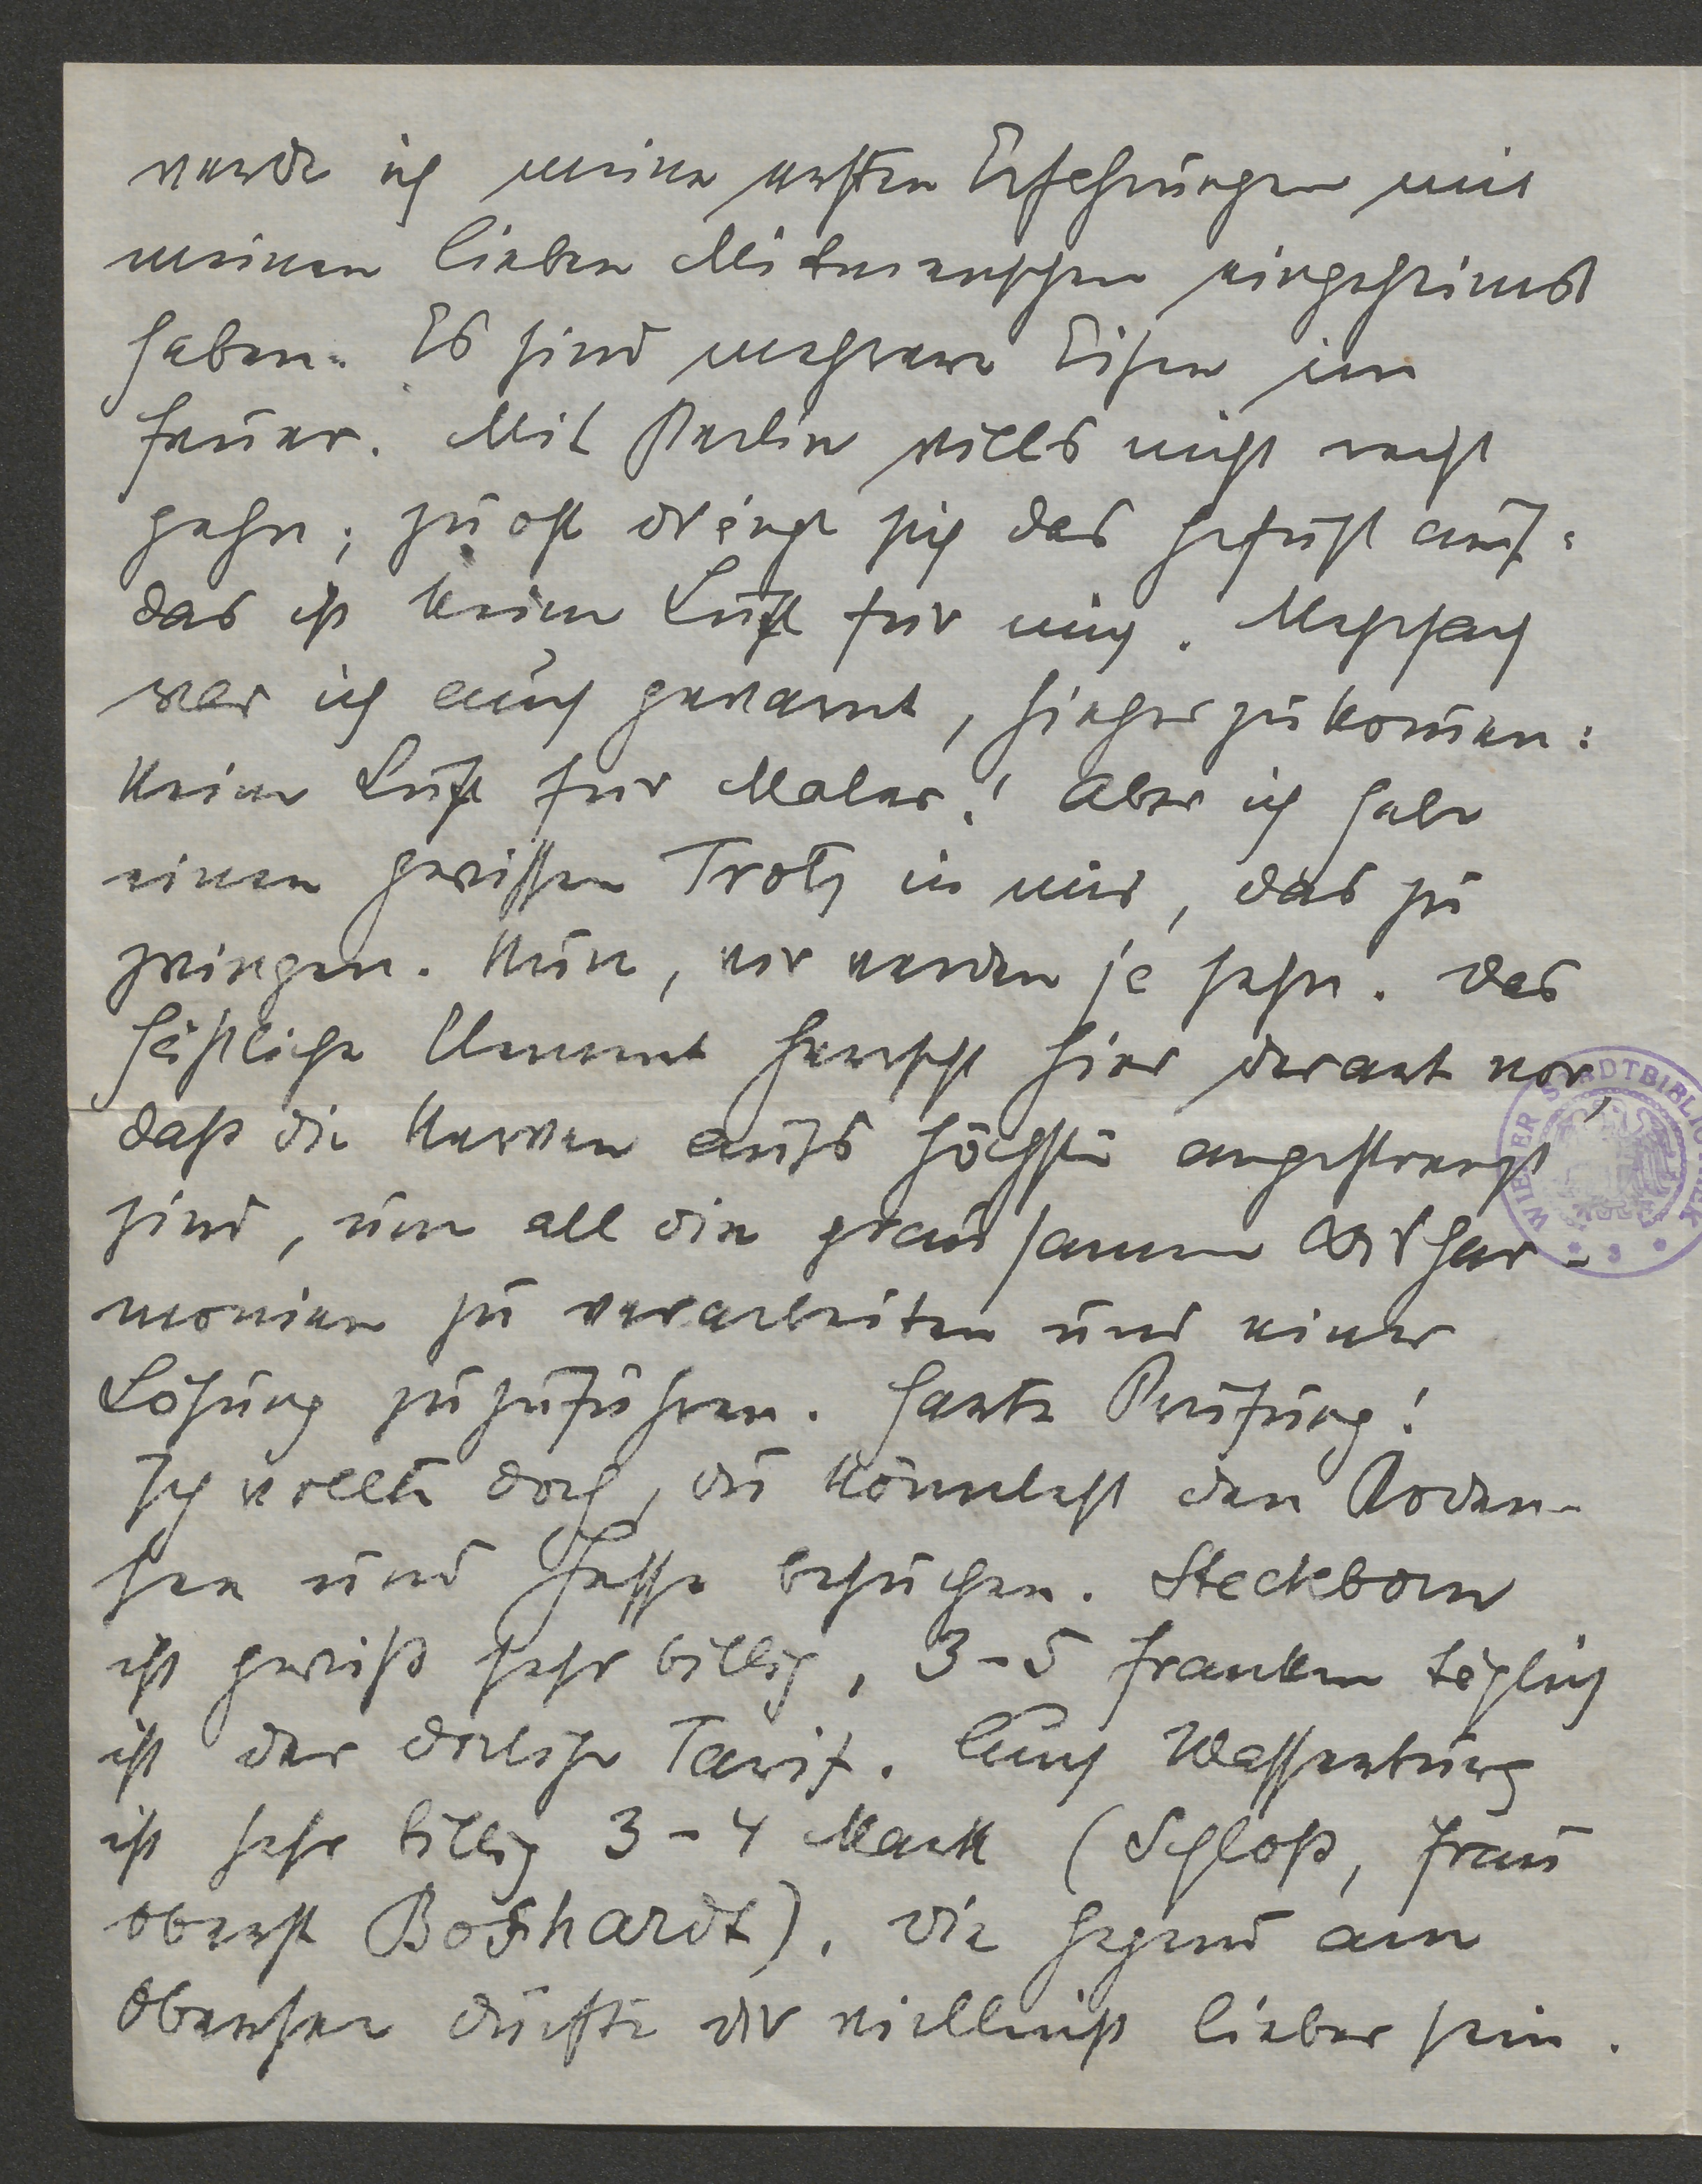 werde ich meine ersten Erfahrungen mit
meinen lieben Mitmenschen eingeheimst
haben. Es sind mehrere Eisen im
Feuer. Mit Berlin wills nicht recht
gehn; zu oft drängt sich das Gefühl auf:
das ist keine Luft für mich. Mehrfach
war ich auch gewarnt, hieher zu kommen:
Keine Luft für Maler! Aber ich habe
einen gewissen Trotz in mir, das zu
zwingen. Nun, wir werden ja sehn. Das
häßliche Element herrscht hier derart vor,
daß die Nerven aufs höchste angestrengt
sind, um all die grausamen Dishar-
monien zu verarbeiten und einer
Lösung zuzuführen. Harte Prüfung!
Ich wollte doch, du könntest den Boden-
see und Hesse besuchen. Steckborn
ist gewiß sehr billig, 3-5 Franken täglich
ist der dortige Tarif. Auch Wasserburg
ist sehr billig 3-4 Mark (Schloß, Frau
Oberst Boshardt). Die Gegend am
Obersee dürfte dir vielleicht lieber sein.
WIENER STADTBIBLIOTHEK
* 3 *